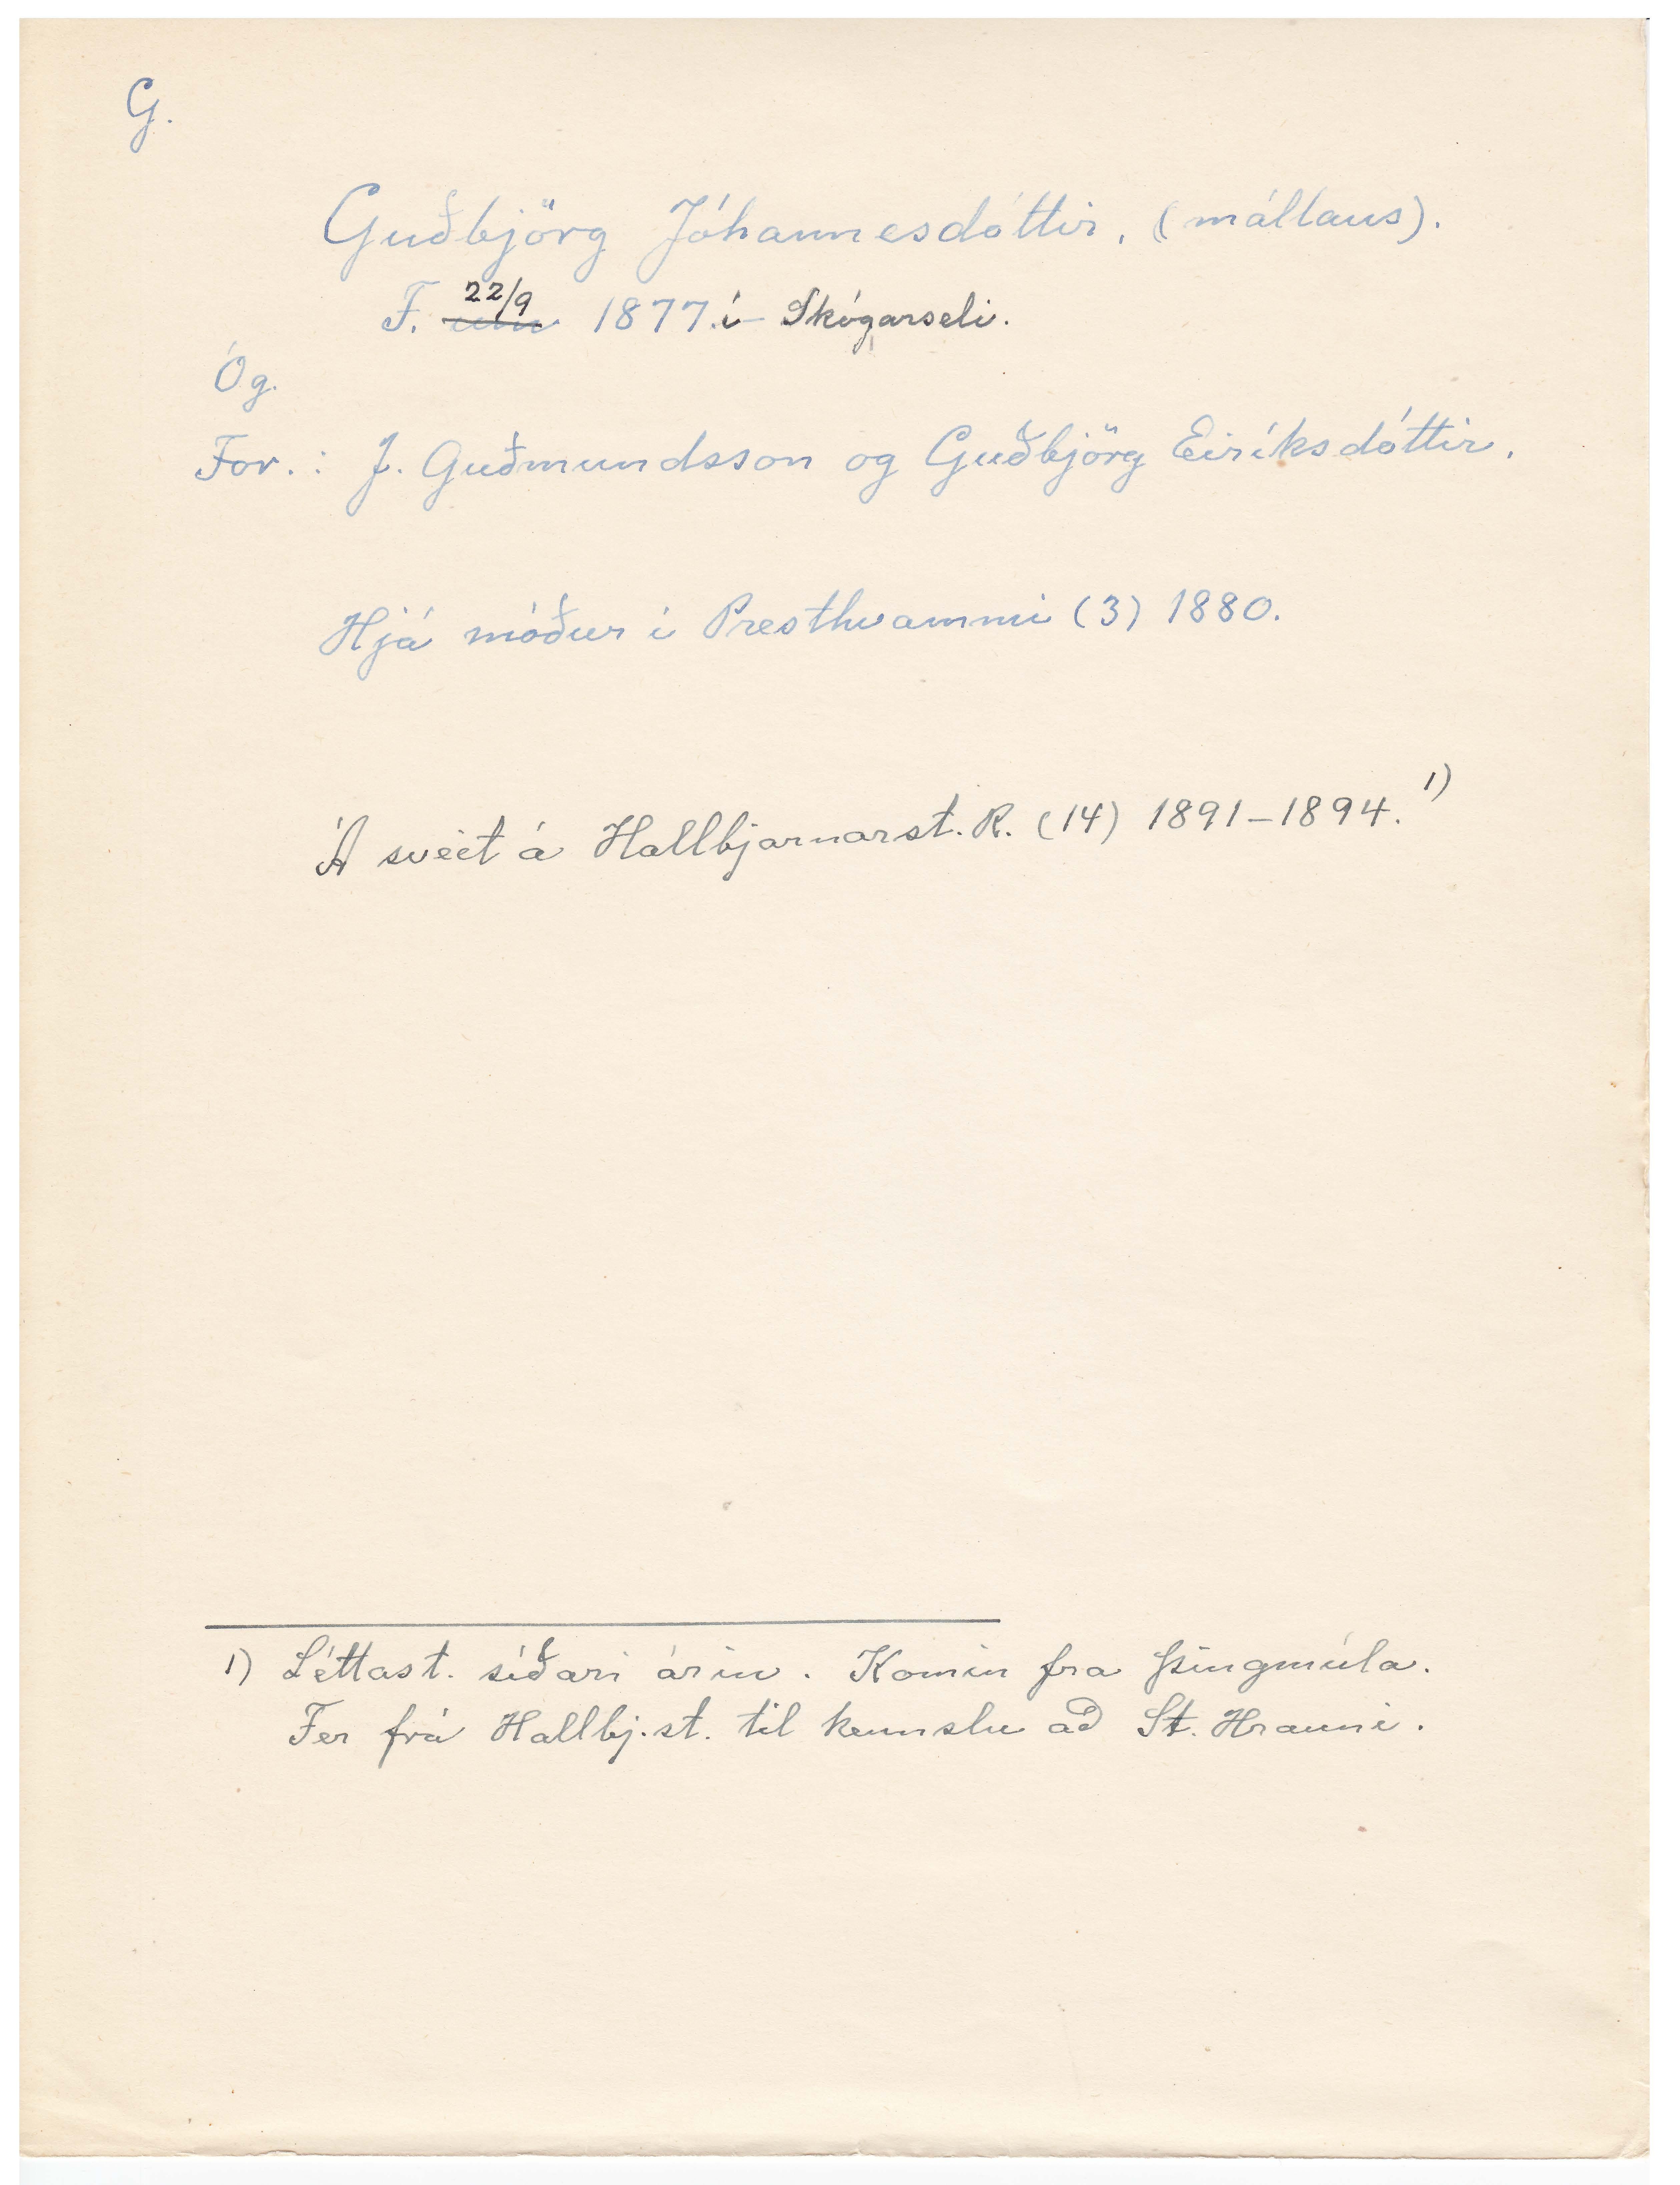 G.
Guðbjörg Jóhannesdóttir, (mállaus).
F. 22/9 um 1877. í Skógarseli.
Óg.
For.: J. Guðmundsson og Guðbjörg Eiríksdóttir.
Hjá móður í Presthvammi (3) 1880.
Á sveit á Hallbjarnarst. R. (14) 1891-1894. 1)
1) Léttast. síðari árin. Komin fra Þingmúla.
Fer frá Hallbj.st. til kennslu að St. Hrauni.